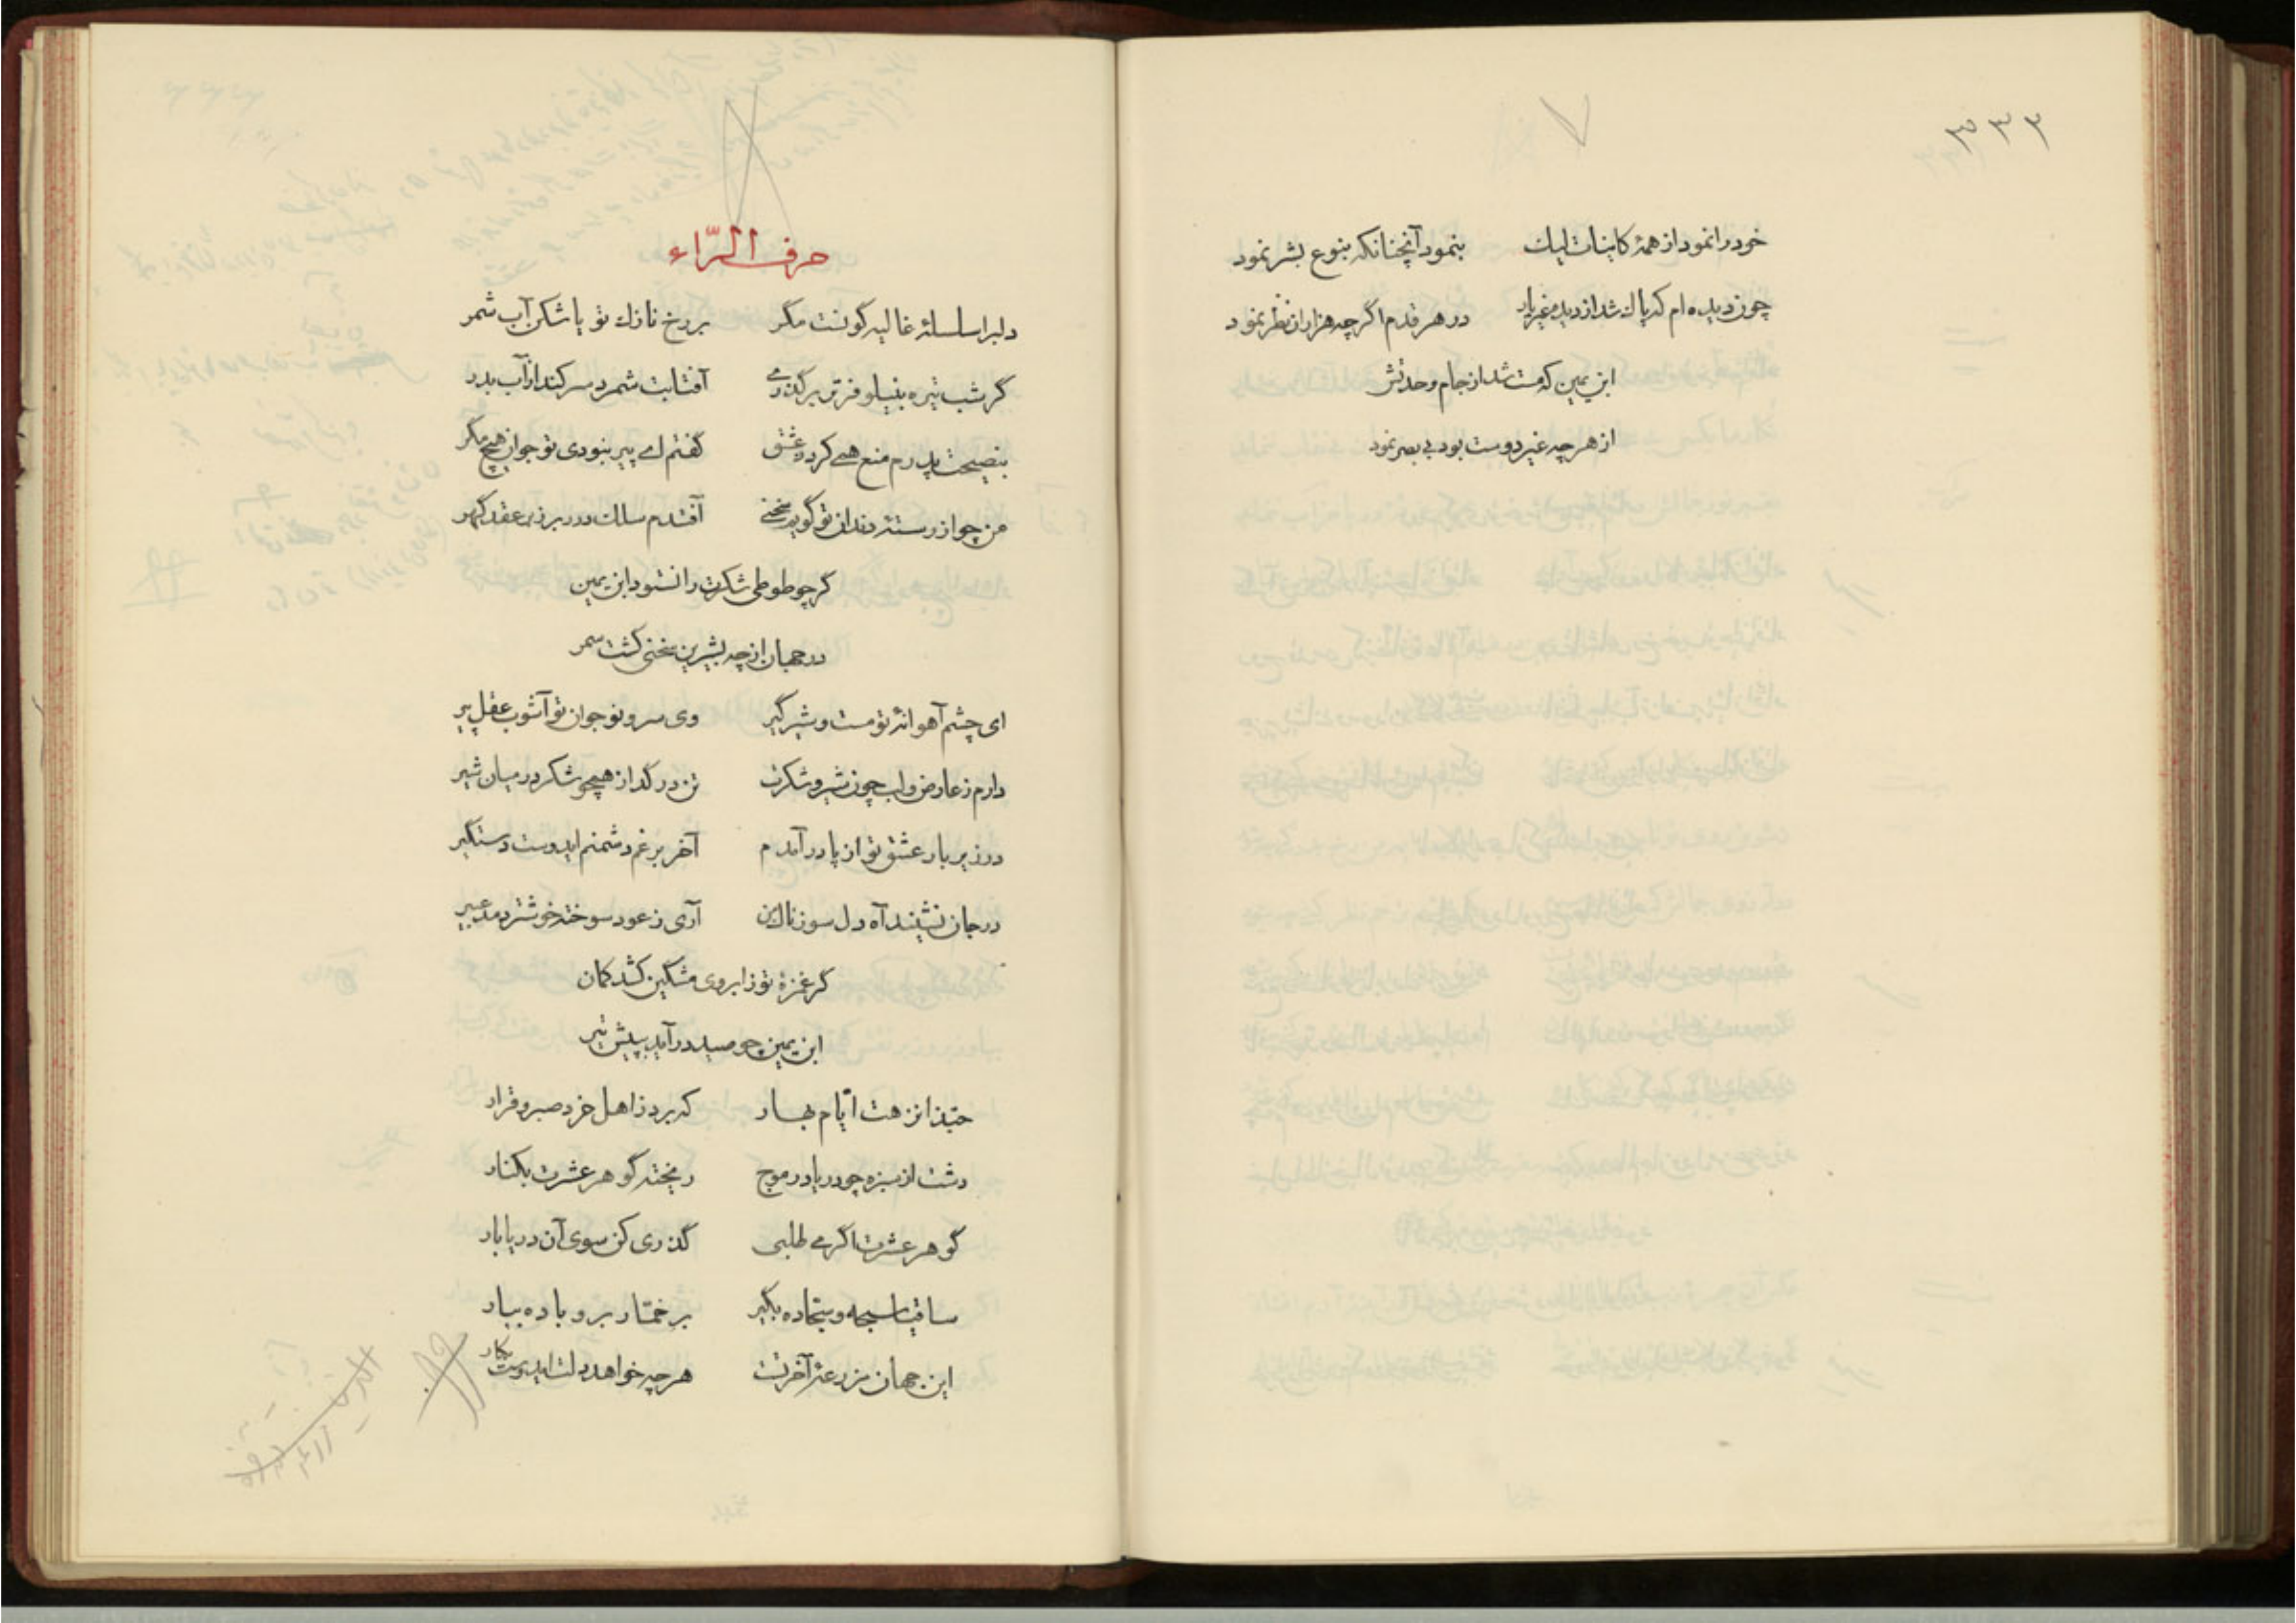 ۳۳۲
خود را نمود از همهٔ کاینات لیک بنمود آنچنانکه بنوع بشر نمود
چون دیده‌ام که پاک شد از دید غیر یار در هر قدم اگر چه هزاران نظر نمود
ابن یمین که مست شد از جام وحدتش
از هر چه غیر دوست بود بی بصر نمود
حرف الرّاء
دلبرا سلسلهٔ غالیه گونت مگر بر رخ نازک تو یا شکن آب شمر
گر شب تیره بنیلوفر تر برگذری آفتابت شمرد سر کند از آب بدر
بنصیحت پدرم منع همی کرد ز عشق گفتم ای پیر نبودی تو جوان هیچ مگر
من چو از رستهٔ دندان تو گویم سخنی افتدم سلک درر بر زبر عقد گهر
گر چو طوطی شکرت را نستود ابن یمین
در جهان از چه بشیرین سخنی گشت سمر
ای چشم آهوانهٔ تو مست و شیر گیر وی سرو نوجوان تو آشوب عقل پیر
دارم ز عارض و لب چون شیر و شکرت تن در گداز همچو شکر در میان شیر
در زیر بار عشق تو از پا در آمدم آخر بر غم دشمنم ایدوست دستگیر
در جان نشیند آه دل سوزناک من آری ز عود سوخته خوشتر دمد عبیر
گر غمزهٔ تو ز ابروی مشگین کشد کمان
ابن یمین چو صید در آید به پیش تیر
حبّذا نزهت ایّام بهار که برد ز اهل خرد صبر و قرار
دشت از سبزه چو دریا در موج ریخته گوهر عشرت بکنار
گوهر عشرت اگر می طلبی گذری کن سوی آن دریا بار
ساقیا سبحه و سجّاده بگیر بر خمّار بر و باده بیار
این جهان مزرعهٔ آخرتست هر چه خواهد دلت ایدوست بکار